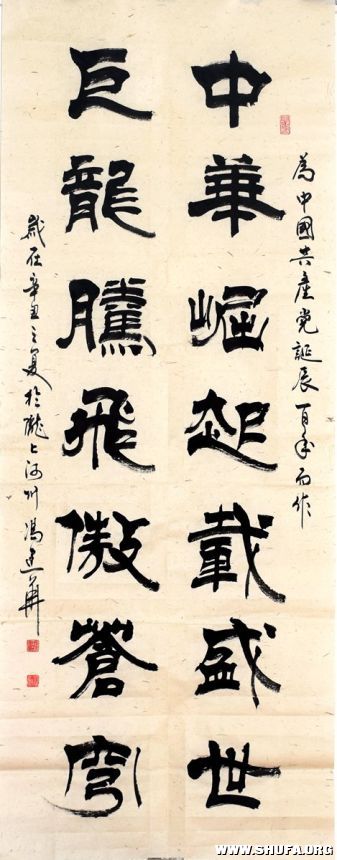 為中國共產党誕辰一百年而作
中華崛起載盛世
巨龍騰飛傲蒼穹
歲在辛丑之夏於隴上河州馮建華
WWW.SHUFA.ORG